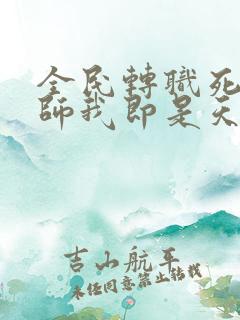 全民轉職死
師我即是天
吉山航平
未經同意禁止轉載